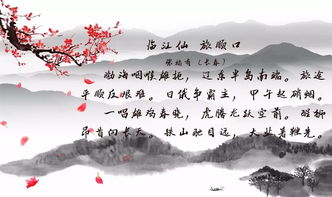 临江仙 旅顺口
张福有（长春）
渤海咽喉雄扼，辽东半岛南端。旅途
平顺反艰难。日俄争霸主，甲午起硝烟。
一唱雄鸡春晓，虎腾龙跃空前。醒狮
昂首向长天。铁山驰目远，大业著鞭先。